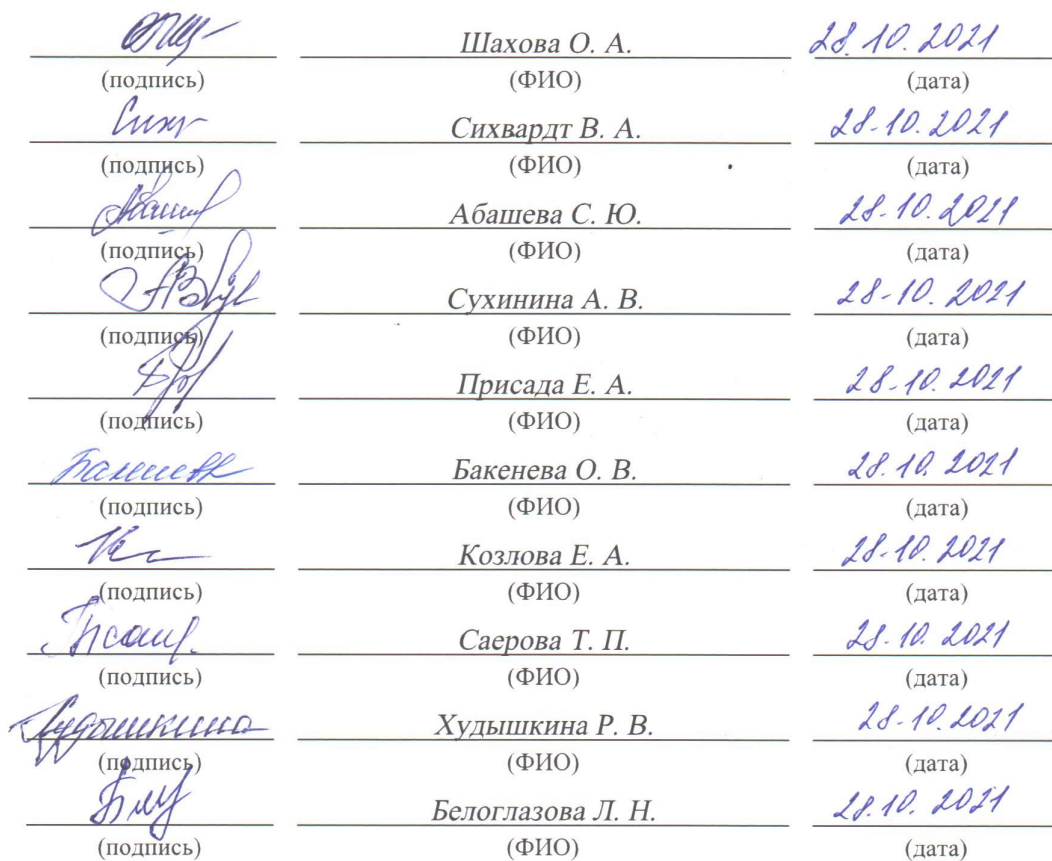 Шахова О. А. 28.10.2021
(подпись) (ФИО) (дата)
Сихвардт В. А. 28.10.2021
(подпись) (ФИО) (дата)
Абашева С. Ю. 28.10.2021
(подпись) (ФИО) (дата)
Сухинина А. В. 28.10.2021
(подпись) (ФИО) (дата)
Присада Е. А. 28.10.2021
(подпись) (ФИО) (дата)
Бакенева О. В. 28.10.2021
(подпись) (ФИО) (дата)
Козлова Е. А. 28.10.2021
(подпись) (ФИО) (дата)
Саерова Т. П. 28.10.2021
(подпись) (ФИО) (дата)
Худышкина Р. В. 28.10.2021
(подпись) (ФИО) (дата)
Белоглазова Л. Н. 28.10.2021
(подпись) (ФИО) (дата)